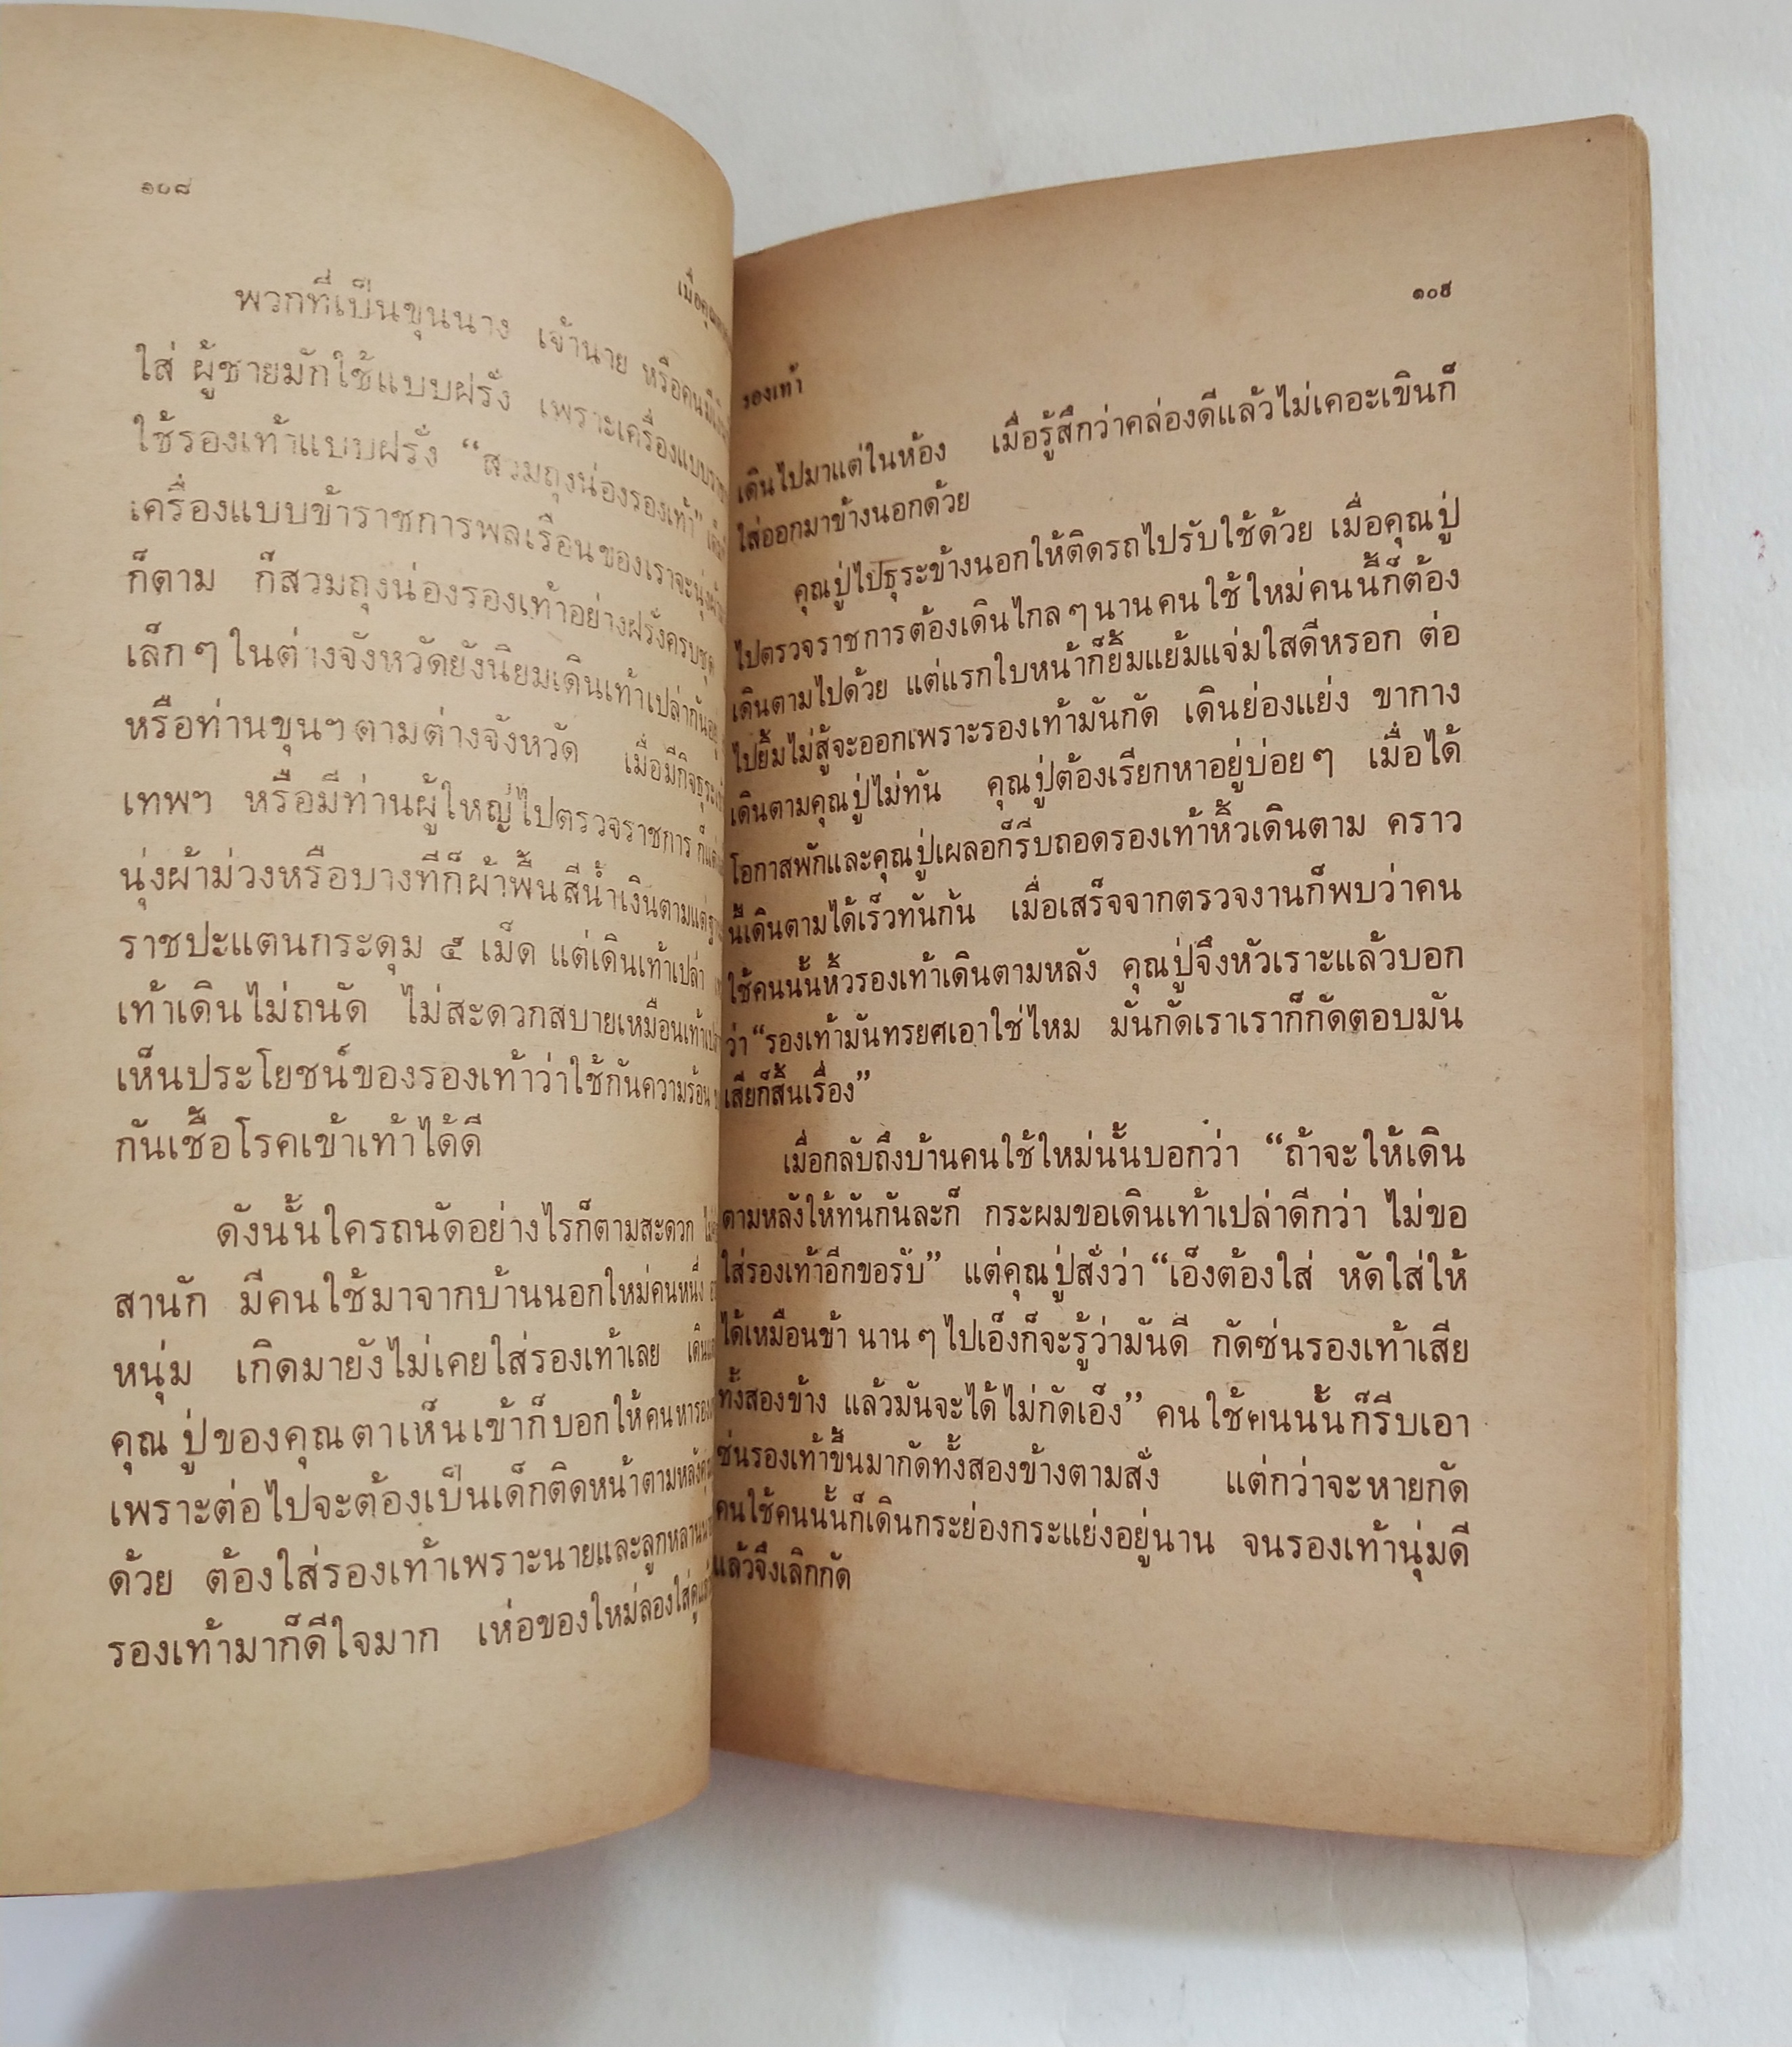 ๑๐๘
พวกที่เป็นขุนนาง เจ้านาย หรือคนมี
ใส่ ผู้ชายมักใช้แบบฝรั่ง เพราะเครื่องแบบ
ใช้รองเท้าแบบฝรั่ง “สวมถุงน่องรองเท้า”
เครื่องแบบข้าราชการพลเรือนของเราจะนุ่ง
ก็ตาม ก็สวมถุงน่องรองเท้าอย่างฝรั่งครบชุด
เล็กๆ ในต่างจังหวัดยังนิยมเดินเท้าเปล่ากันอยู่
หรือท่านขุนฯ ตามต่างจังหวัด เมื่อมีกิจธุระ
เทพฯ หรือมีท่านผู้ใหญ่ไปตรวจราชการ ก็แต่
นุ่งผ้าม่วงหรือบางทีก็ผ้าพื้นสีน้ำเงินตามแต่
ราชปะแตนกระดุม ๕ เม็ด แต่เดินเท้าเปล่า
เท้าเดินไม่ถนัด ไม่สะดวกสบายเหมือนเท้าเปล่า
เห็นประโยชน์ของรองเท้าว่าใช้กันความร้อน
กันเชื้อโรคเข้าเท้าได้ดี
ดังนั้นใครถนัดอย่างไรก็ตามสะดวก
สานัก มีคนใช้มาจากบ้านนอกใหม่คนหนึ่ง
หนุ่ม เกิดมายังไม่เคยใส่รองเท้าเลย
คุณปู่ของคุณตาเห็นเข้าก็บอกให้คนหา
เพราะต่อไปจะต้องเป็นเด็กติดหน้าตามหลัง
ด้วย ต้องใส่รองเท้าเพราะนายและลูกหลาน
รองเท้ามาก็ดีใจมาก เห่อของใหม่ลองใส่
๑๐๙
รองเท้า
เดินไปมาแต่ในห้อง เมื่อรู้สึกว่าคล่องดีแล้วไม่เคอะเขินก็
ใส่ออกมาข้างนอกด้วย
คุณปู่ไปธุระข้างนอกให้ติดรถไปรับใช้ด้วย เมื่อคุณปู่
ไปตรวจราชการต้องเดินไกลๆ นานคนใช้ใหม่คนนี้ก็ต้อง
เดินตามไปด้วย แต่แรกใบหน้าก็ยิ้มแย้มแจ่มใสดีหรอก ต่อ
ไปยิ้มไม่สู้จะออกเพราะรองเท้ามันกัด เดินย่องแย่ง ขากาง
เดินตามคุณปู่ไม่ทัน คุณปู่ต้องเรียกหาอยู่บ่อยๆ เมื่อได้
โอกาสพักและคุณปู่เผลอก็รีบถอดรองเท้าหิ้วเดินตาม คราว
นี้เดินตามได้เร็วทันกัน เมื่อเสร็จจากตรวจงานก็พบว่าคน
ใช้คนนั้นหิ้วรองเท้าเดินตามหลัง คุณปู่จึงหัวเราะแล้วบอก
ว่า “รองเท้ามันทรยศเอาใช่ไหม มันกัดเราเราก็กัดตอบมัน
เสียก็สิ้นเรื่อง”
เมื่อกลับถึงบ้านคนใช้ใหม่นั้นบอกว่า “ถ้าจะให้เดิน
ตามหลังให้ทันกันละก็ กระผมขอเดินเท้าเปล่าดีกว่า ไม่ขอ
ใส่รองเท้าอีกขอรับ” แต่คุณปู่สั่งว่า “เอ็งต้องใส่ หัดใส่ให้
ได้เหมือนข้า นานๆ ไปเอ็งก็จะรู้ว่ามันดี กัดซ่นรองเท้าเสีย
ทั้งสองข้าง แล้วมันจะได้ไม่กัดเอ็ง” คนใช้คนนั้นก็รีบเอา
ซ่นรองเท้าขึ้นมากัดทั้งสองข้างตามสั่ง แต่กว่าจะหายกัด
คนใช้คนนั้นก็เดินกระย่องกระแย่งอยู่นาน จนรองเท้านุ่มดี
แล้วจึงเลิกกัด